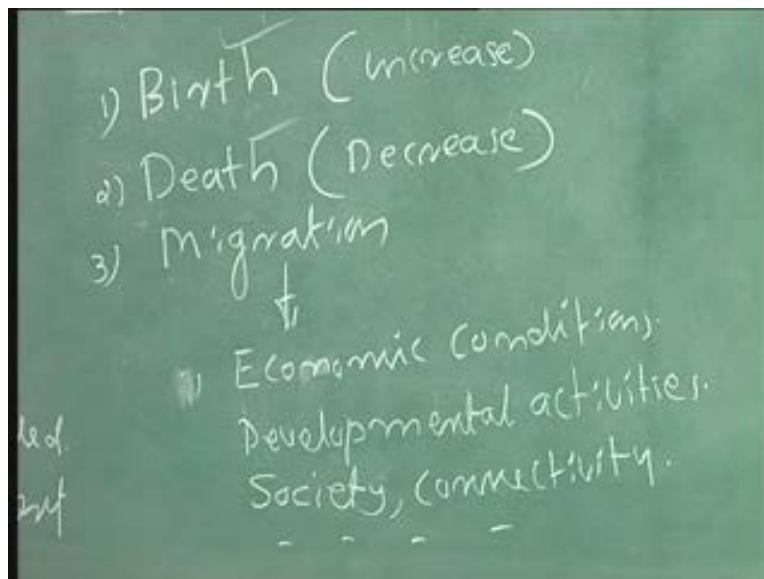 1) Birth (increase)
2) Death (Decrease)
3) Migration
↓
Economic conditions.
Developmental activities.
Society, connectivity.
- - - -